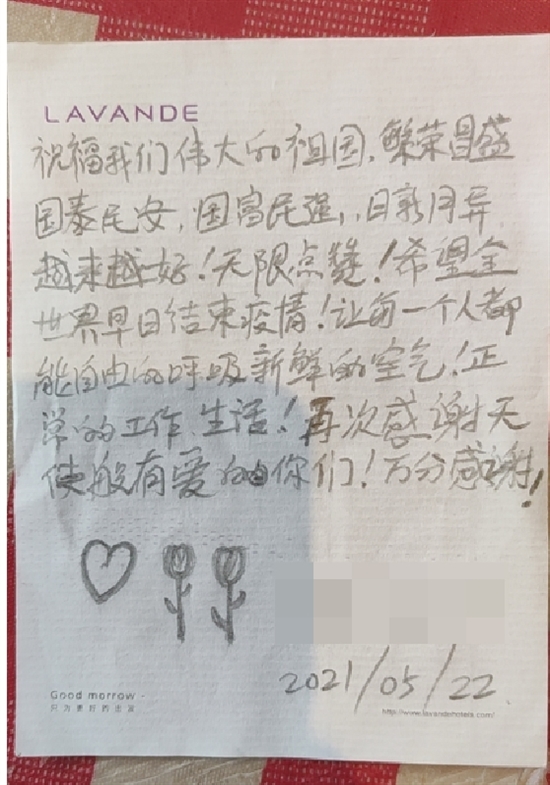 LAVANDE
祝福我们伟大的祖国,繁荣昌盛
国泰民安,国富民强,日新月异
越来越好!无限点赞!希望全
世界早日结束疫情!让每一个人都
能自由的呼吸新鲜的空气!正
常的工作、生活!再次感谢天
使般有爱的你们!万分感谢!
2021/05/22
Good morrow -
只为更好的出发
http://www.lavandehotels.com/